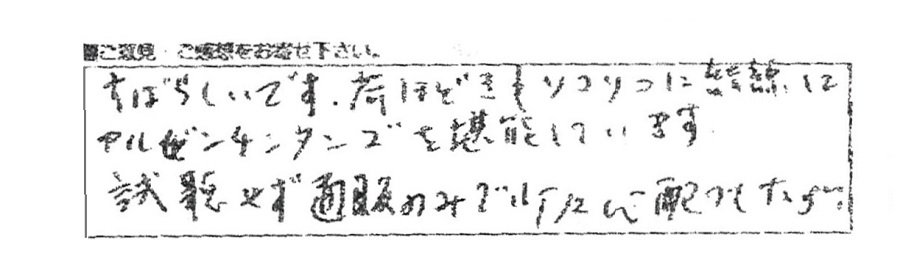 ■ご意見・ご感想をお寄せ下さい。
すばらしいです。荷ほどきもソコソコに 無線に
アルゼンチンタンゴを堪能しています
試聴せず通販のみで 心配でしたが